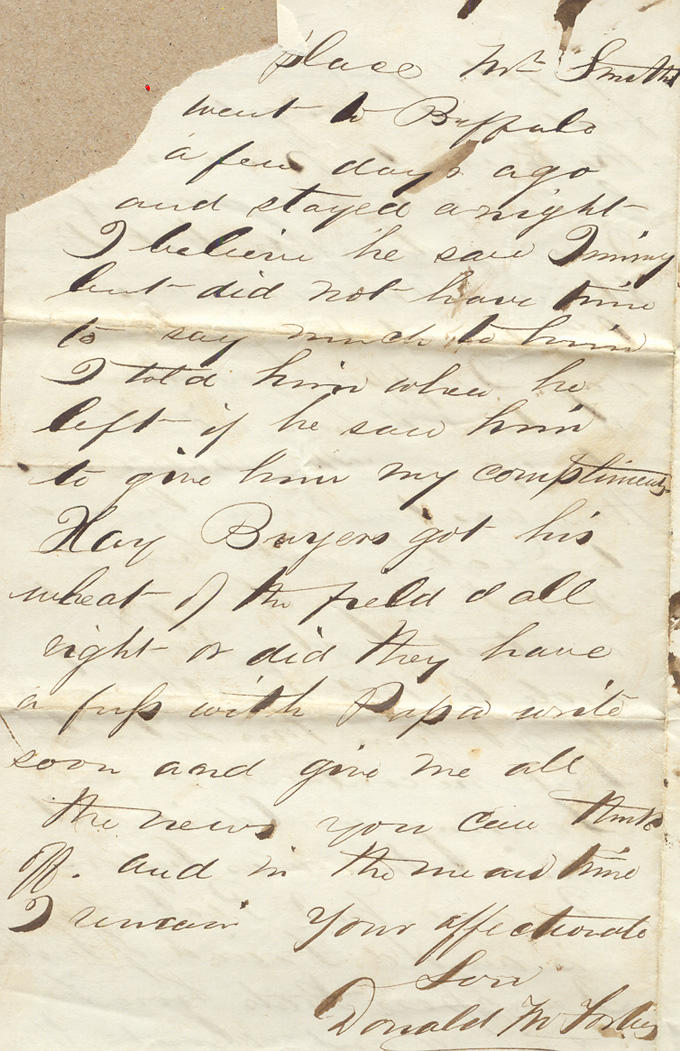 place Mr Smith
went to Buffalo
a few days ago
and stayed a night
I believe he saw Jimmy
but did not have time
to say much to him
I told him when he
left if he saw him
to give him my compliments
Hay Buyers got his
wheat of the field & all
right or did they have
a fuss with Papa write
soon and give me all
the news you can think
off. and in the mean time
I remain Your affectionate
Son
Donald